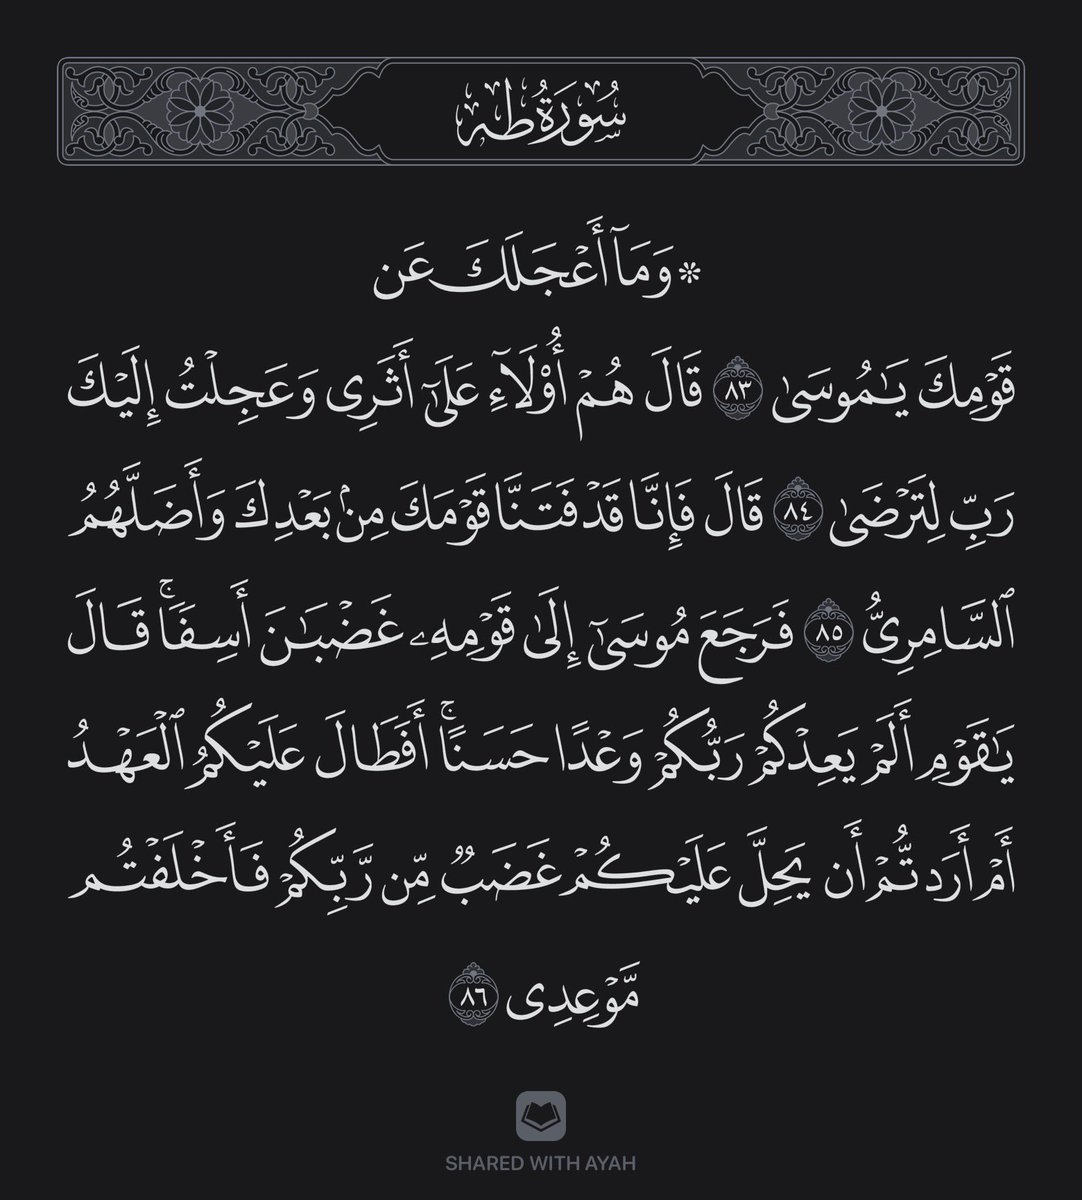 سُورَةُ طه
۞ وَمَآ أَعْجَلَكَ عَن
قَوْمِكَ يَـٰمُوسَىٰ ٨٣ قَالَ هُمْ أُو۟لَآءِ عَلَىٰٓ أَثَرِى وَعَجِلْتُ إِلَيْكَ
رَبِّ لِتَرْضَىٰ ٨٤ قَالَ فَإِنَّا قَدْ فَتَنَّا قَوْمَكَ مِنۢ بَعْدِكَ وَأَضَلَّهُمُ
ٱلسَّامِرِىُّ ٨٥ فَرَجَعَ مُوسَىٰٓ إِلَىٰ قَوْمِهِۦ غَضْبَـٰنَ أَسِفًا ۚ قَالَ
يَـٰقَوْمِ أَلَمْ يَعِدْكُمْ رَبُّكُمْ وَعْدًا حَسَنًا ۚ أَفَطَالَ عَلَيْكُمُ ٱلْعَهْدُ
أَمْ أَرَدتُّمْ أَن يَحِلَّ عَلَيْكُمْ غَضَبٌ مِّن رَّبِّكُمْ فَأَخْلَفْتُم
مَّوْعِدِى ٨٦
SHARED WITH AYAH